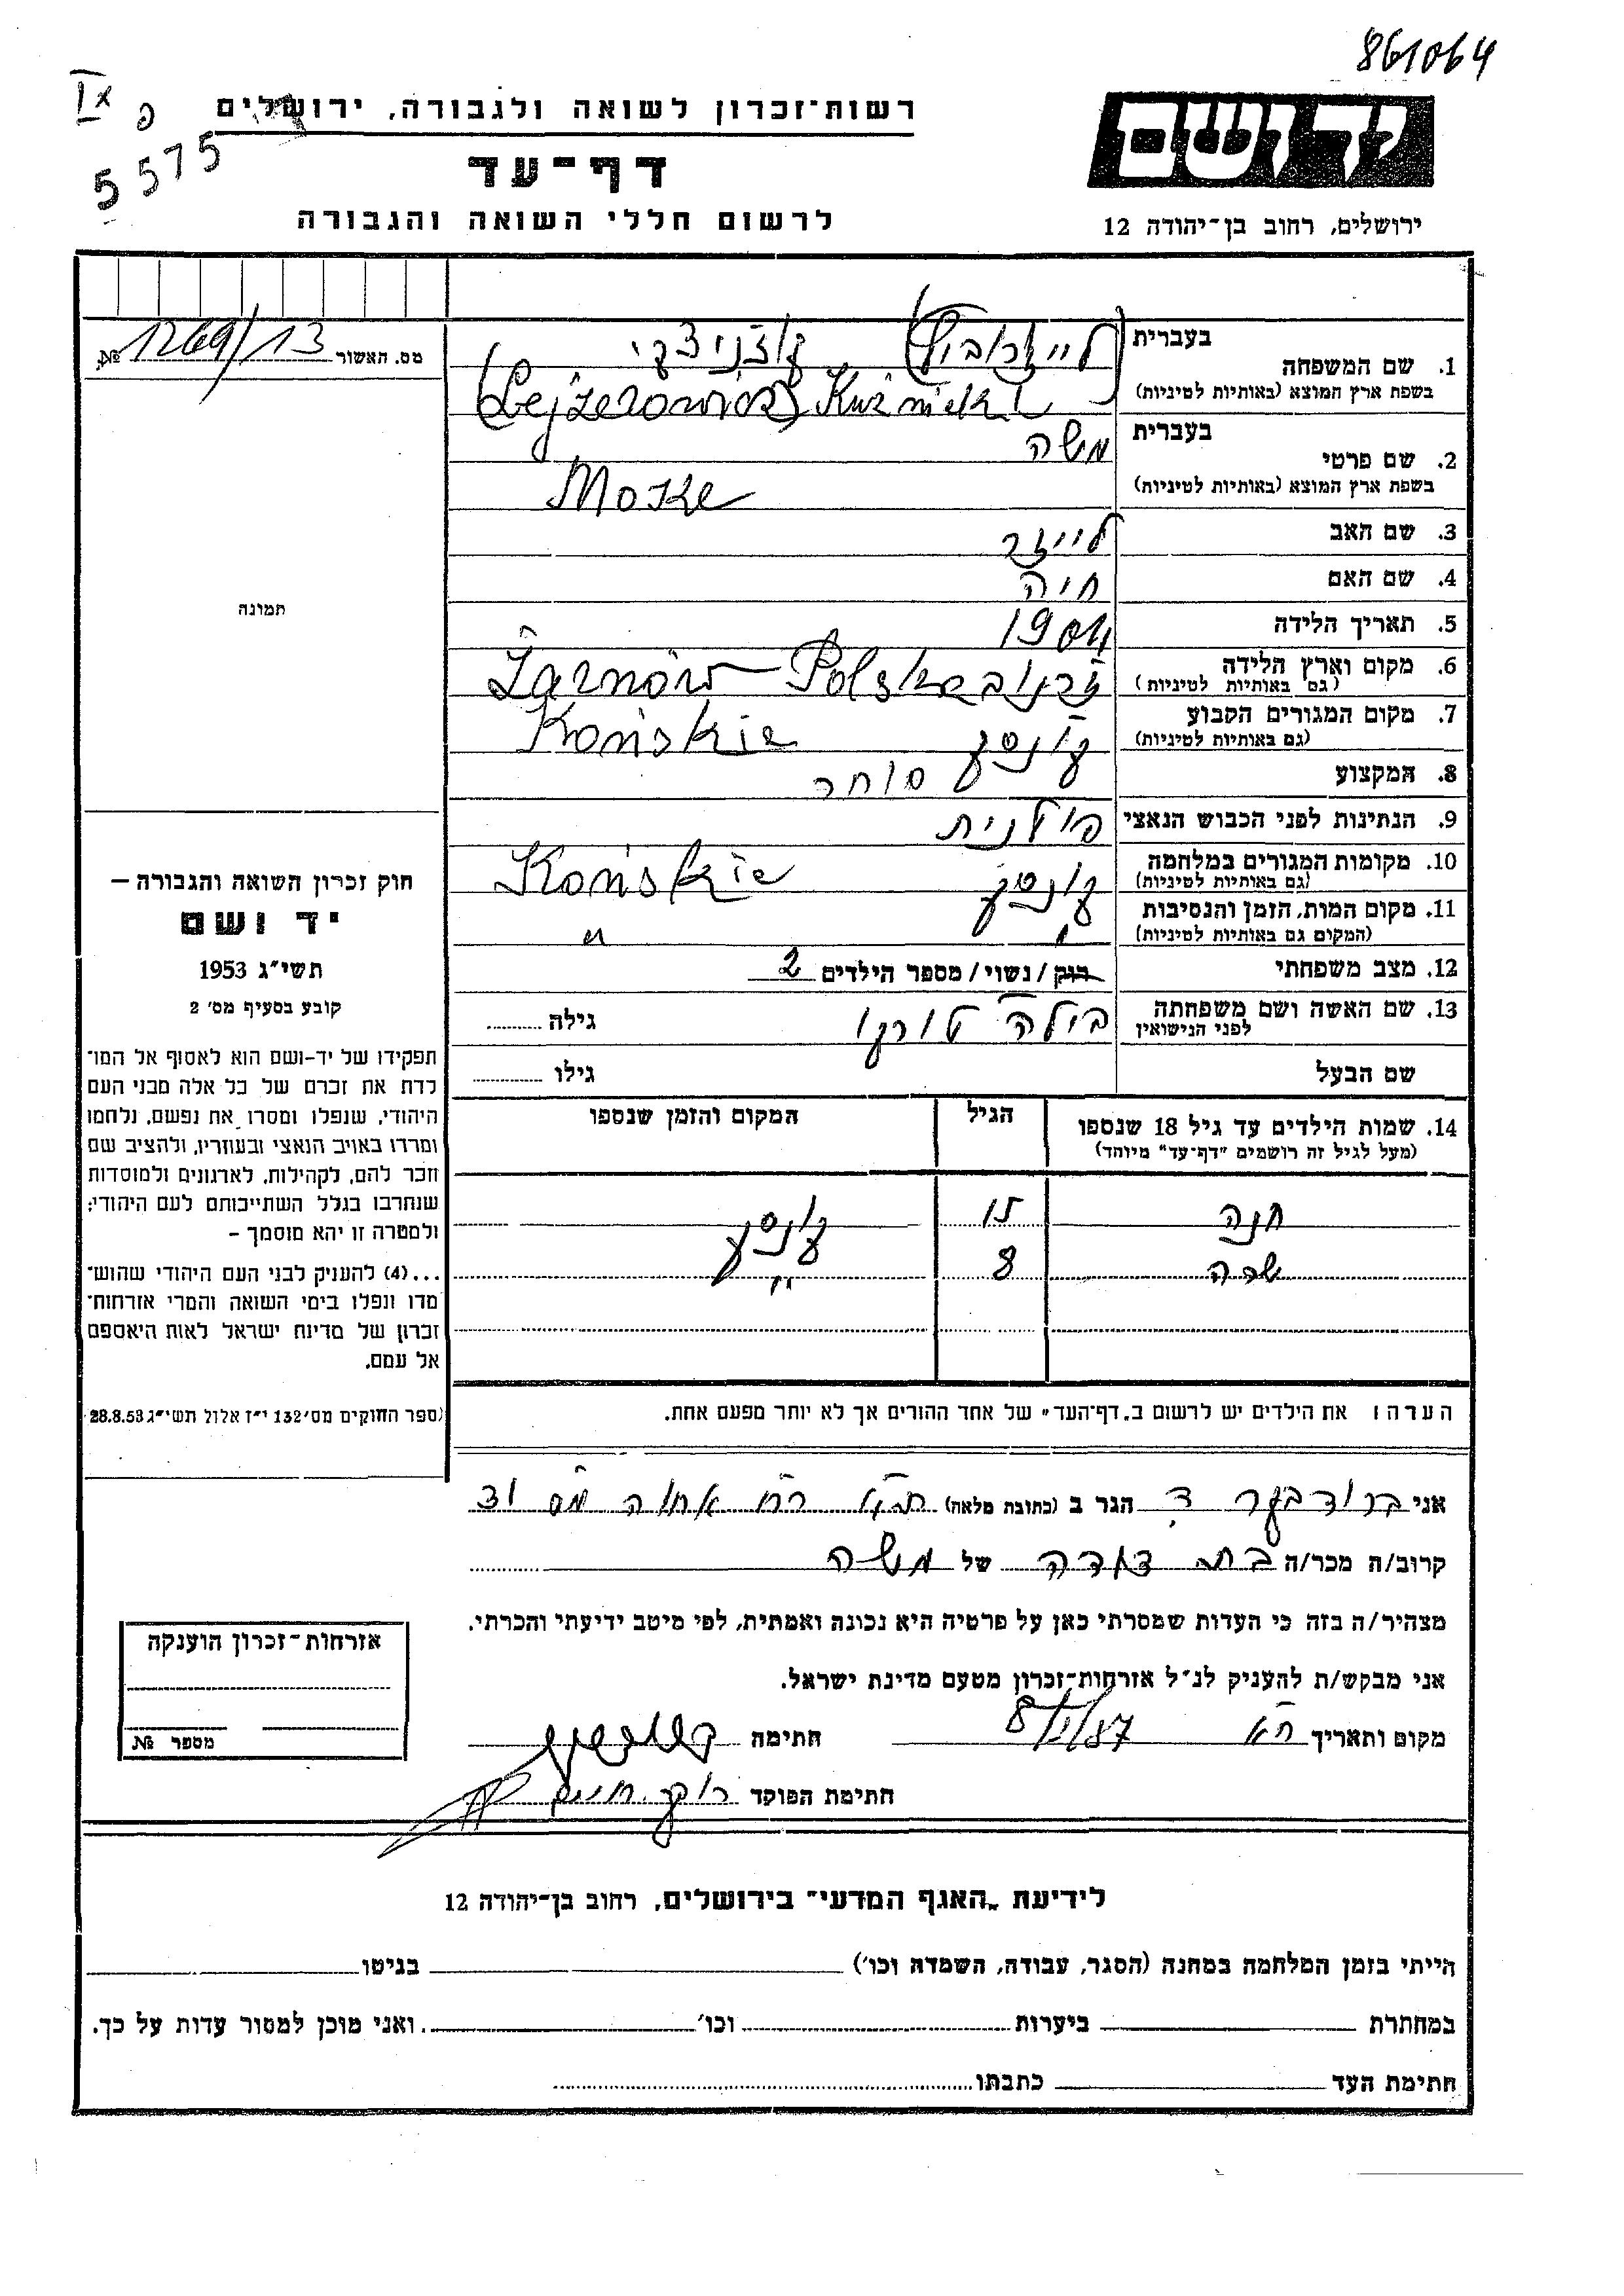 861064
IX
פ
5575
רשות-זכרון לשואה ולגבורה, ירושלים
דף-עד
לרשום חללי השואה והגבורה
יד ושם
ירושלים, רחוב בן-יהודה 12
מס. האשור 1269/13 №
1. שם המשפחה
בעברית (לייזרוביץ) קוזניצקי
בשפת ארץ המוצא (באותיות לטיניות) (Lejzerowicz) Kuźnicki
2. שם פרטי
בעברית משה
בשפת ארץ המוצא (באותיות לטיניות) Moske
3. שם האב לייזר
4. שם האם חיה
5. תאריך הלידה 1904
6. מקום וארץ הלידה Żarnów - Polska
(גם באותיות לטיניות)
7. מקום המגורים הקבוע קונסק Końskie
(גם באותיות לטיניות)
8. המקצוע סוחר
9. הנתינות לפני הכבוש הנאצי פולנית
10. מקומות המגורים במלחמה קונסק Końskie
(גם באותיות לטיניות)
11. מקום המות, הזמן והנסיבות " "
(המקום גם באותיות לטיניות)
12. מצב משפחתי רווק / נשוי / מספר הילדים 2
13. שם האשה ושם משפחתה ביילה טורקו גילה
לפני הנישואין
שם הבעל גילו
14. שמות הילדים עד גיל 18 שנספו הגיל המקום והזמן שנספו
(מעל לגיל זה רושמים "דף-עד" מיוחד)
חנה 15 קונסק
שרה 8 "
הערה: את הילדים יש לרשום ב"דף-העד" של אחד ההורים אך לא יותר מפעם אחת.
תמונה
חוק זכרון השואה והגבורה –
יד ושם
תשי"ג 1953
קובע בסעיף מס' 2
תפקידו של יד-ושם הוא לאסוף אל המו-
לדת את זכרם של כל אלה מבני העם
היהודי, שנפלו ומסרו את נפשם, נלחמו
ומרדו באויב הנאצי ובעוזריו, ולהציב שם
וזכר להם, לקהילות, לארגונים ולמוסדות
שנחרבו בגלל השתייכותם לעם היהודי;
ולמטרה זו יהא מוסמך –
...(4) להעניק לבני העם היהודי שהוש-
מדו ונפלו בימי השואה והמרי אזרחות-
זכרון של מדינת ישראל לאות היאספם
אל עמם.
(ספר החוקים מס' 132 י"ז אלול תשי"ג 28.8.53
אני הגר ב (כתובת מלאה) ת"א רח
קרוב/ה מכר/ה בת דודה של משה
מצהיר/ה בזה כי העדות שמסרתי כאן על פרטיה היא נכונה ואמתית, לפי מיטב ידיעתי והכרתי.
אני מבקש/ת להעניק לנ"ל אזרחות-זכרון מטעם מדינת ישראל.
מקום ותאריך ת"א 8/1/87 חתימה
חתימת הפוקד
אזרחות-זכרון הוענקה
מספר №
לידיעת "האגף המדעי" בירושלים, רחוב בן-יהודה 12
הייתי בזמן המלחמה במחנה (הסגר, עבודה, השמדה וכו') בגיטו
במחתרת ביערות וכו' ואני מוכן למסור עדות על כך.
חתימת העד כתבתו